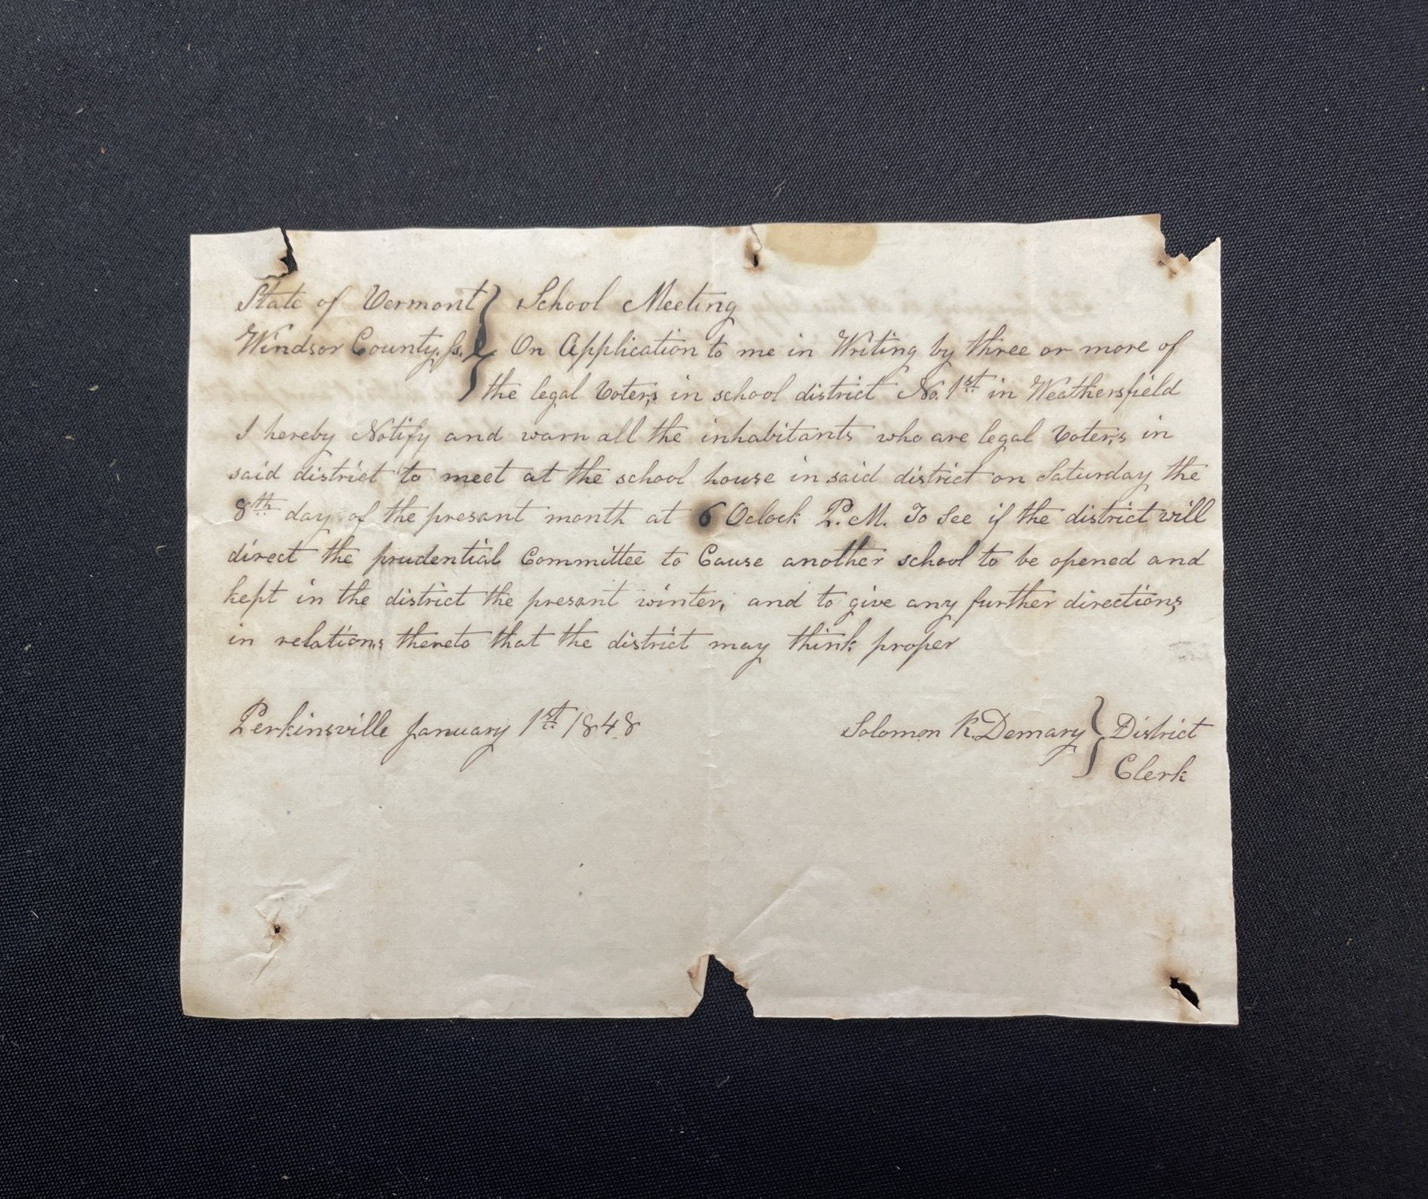 State of Vermont } School Meeting
Windsor County, ss. } On Application to me in Writing by three or more of
the legal Voters in school district No. 1st in Weathersfield
I hereby Notify and warn all the inhabitants who are legal Voters in
said district to meet at the school house in said district on Saturday the
8th day of the presant month at 6 Oclock P.M. To See if the district will
direct the prudential Committee to Cause another school to be opened and
kept in the district the presant winter, and to give any further directions
in relations thereto that the district may think proper
Perkinsville January 1st 1848 Solomon K. Demary } District
Clerk